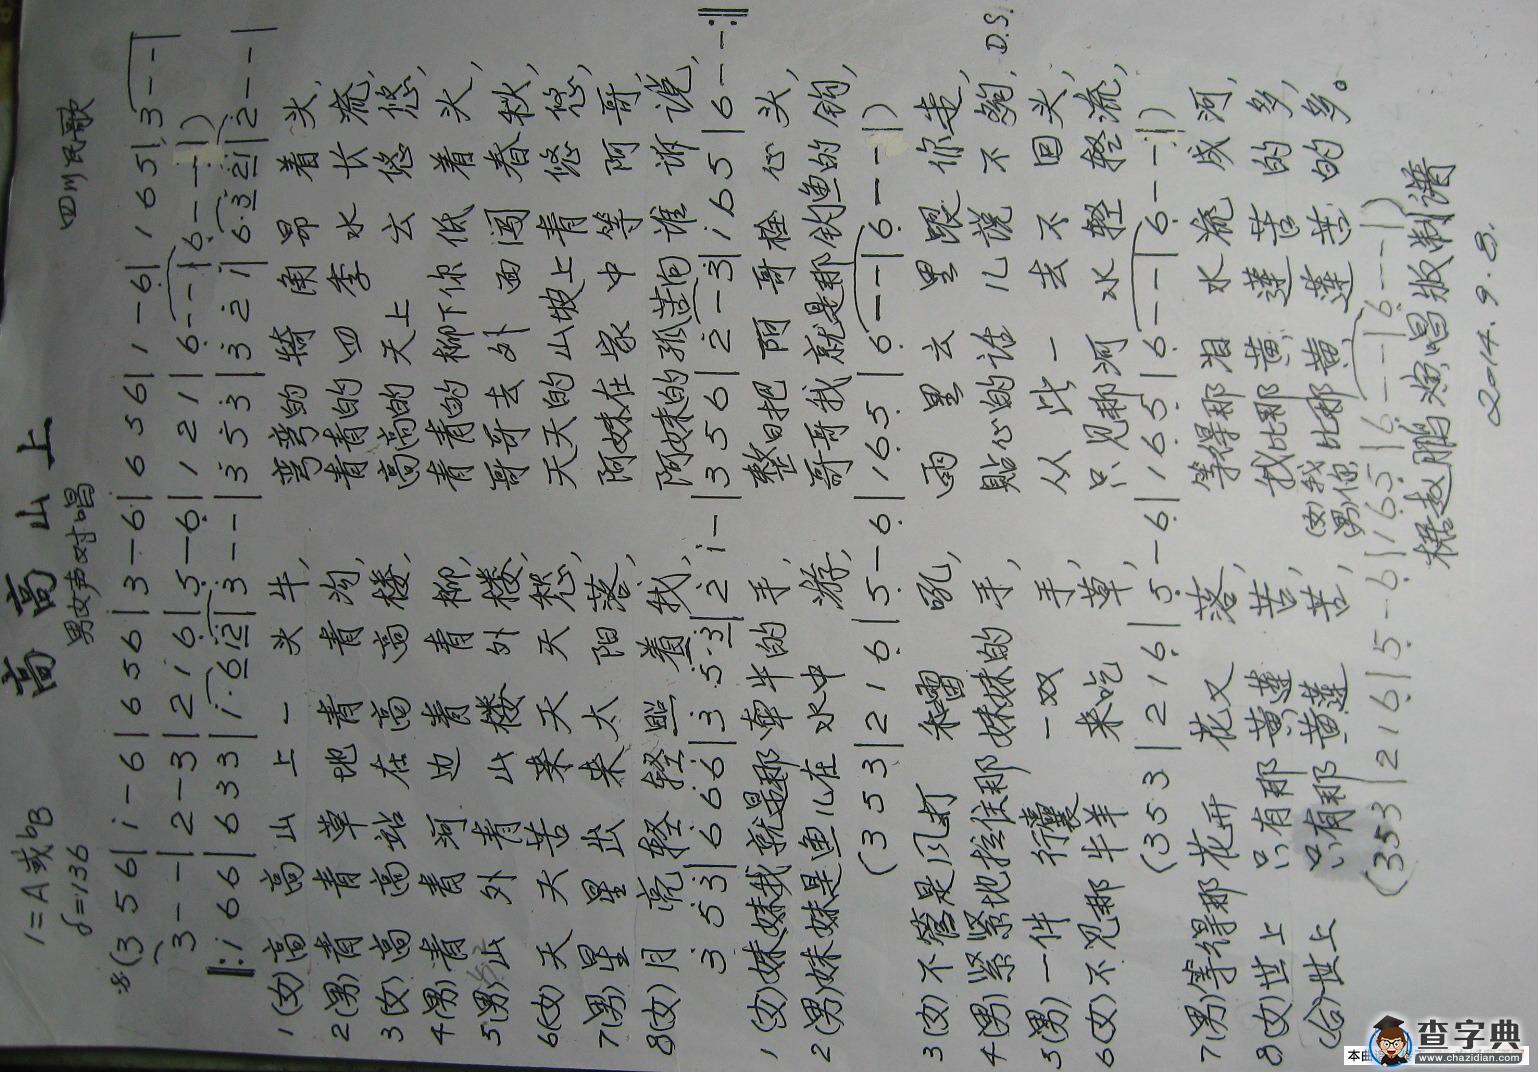 高高山上
1=A或bB
男女声对唱
四川民歌
♩=136
(3 5 6|i - 6|6 5 6|3 - 6|6 5 6|1 - 6|1 6 5|3 - -|
3 - -|2 - 3|2 1 6|5 - 6|1 2 1|6 - -|6 - -|)
‖:i 6 6|6 3 3|i· 6 i2|3 - -|3 5 3|3 2 i|6· 3 2 1|2 - -|
1(女)高高山上一头牛, 弯弯的犄角昂着头,
2(男)青青草地青青沟, 青青的四季水长流,
3(女)高高站在高高楼, 高高的天上云悠悠,
4(男)青青河边青青柳, 青青的柳下你低着头,
5(男)山外青山楼外楼, 哥哥去外面闯春秋,
6(女)天天苦来天天愁, 天天的山坡上青悠悠,
7(男)星星出来太阳落, 阿妹在家中等阿哥,
8(女)月亮轻轻照着我, 阿妹的孤苦向谁诉说,
3 5 3|6 6 6|3 5·3|2 i -|3 5 6|2 - 3|i 6 5|6 - -:‖
1(女)妹妹我就是那牵牛的手, 整日把阿哥栓心头,
2(男)妹妹是鱼儿在水中游, 哥哥我就是那钓鱼的钩,
(3 5 3|2 1 6|5 - 6|1 6 5|6 - -|6 - -|)
3(女)不管是风打和雷吼, 雨里云里跟你走,
4(男)紧紧地拉住那妹妹的手, 贴心的话儿说不够, D.S.
5(男)一件行囊一双手, 从此一去不回头,
6(女)不见那牛羊来吃草, 只见那河水轻轻流,
(3 5 3|2 1 6|5 - 6|1 6 5|6 - -|6 - -:|)
7(男)等得那花开花又落, 等得那泪水流成河,
8(女)世上只有那黄莲苦, 我比那黄莲苦的多,
(合)世上只有那黄莲苦, (女)我(男)你比那黄莲苦的多。
(3 5 3|2 1 6|5 - 6|1 6 5|6 - -|6 - -|)
据赵鹏演唱版制谱
2014.9.8.
本曲
查字典
www.chazidian.com